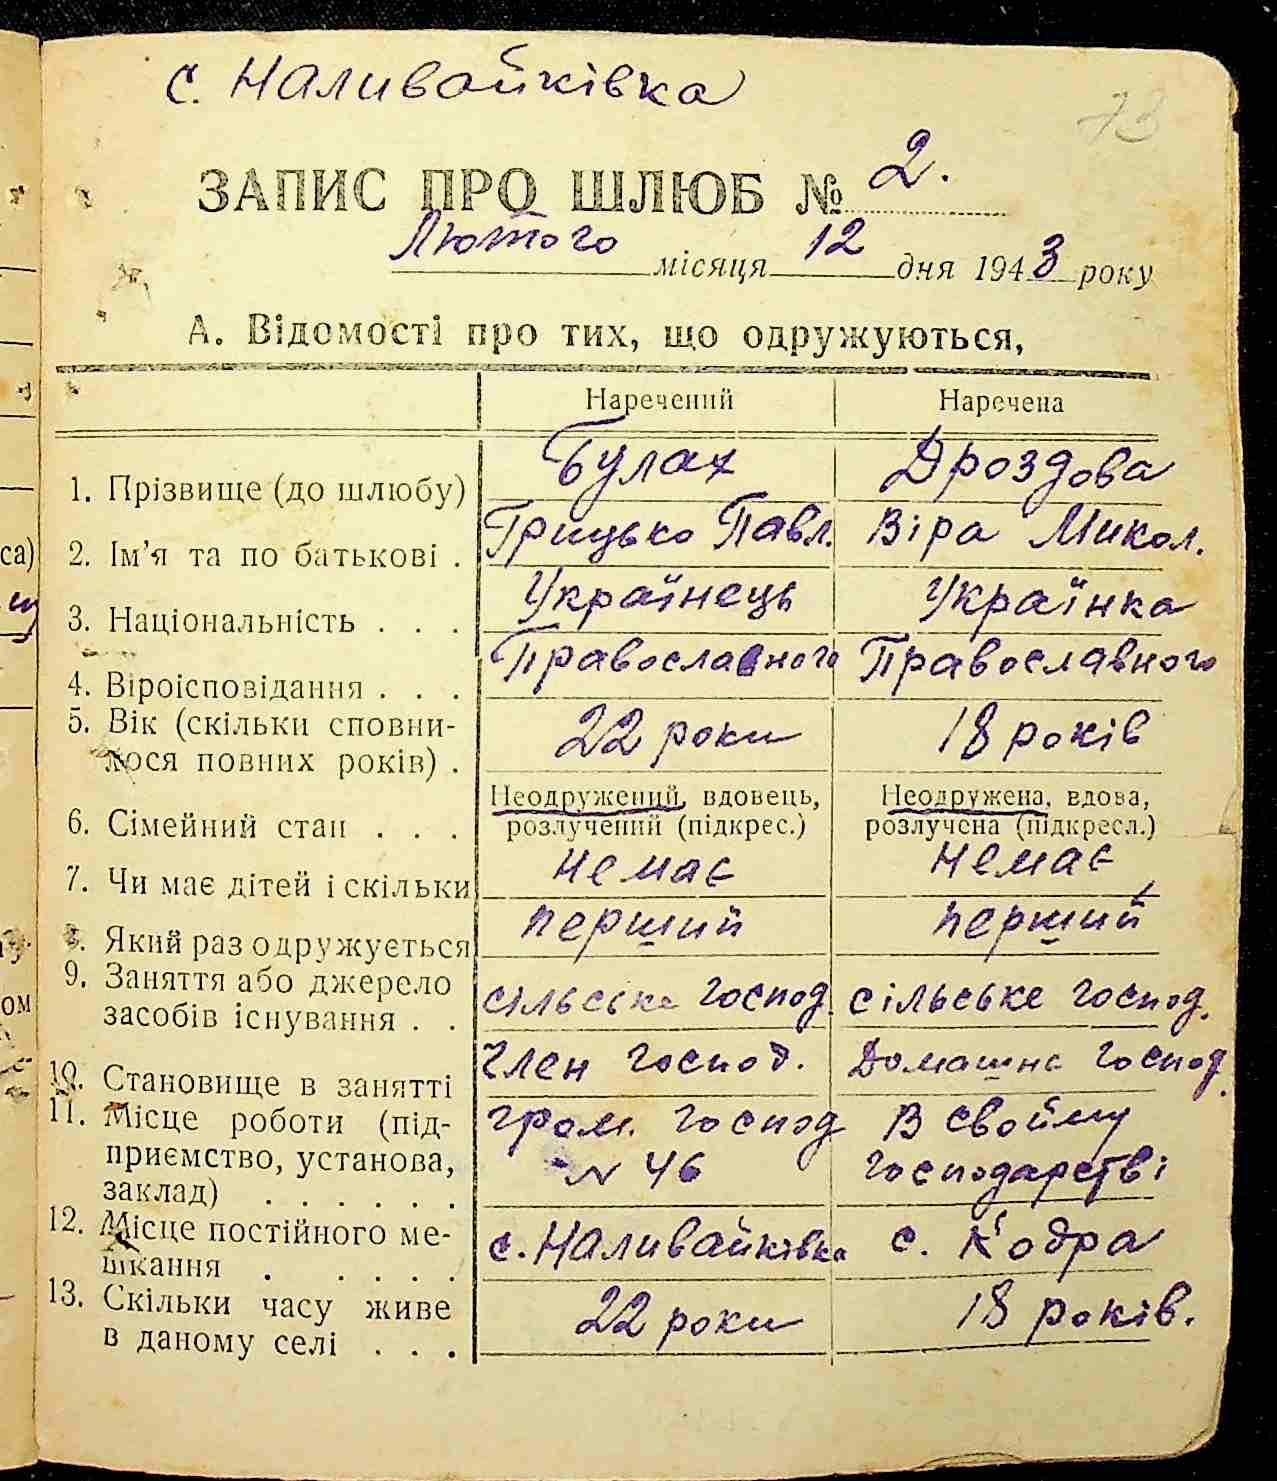 с. Наливайківка
73
ЗАПИС ПРО ШЛЮБ № 2.
Лютого місяця 12 дня 1943 року
А. Відомості про тих, що одружуються,
Наречений Наречена
1. Прізвище (до шлюбу) Булах Дроздова
2. Ім'я та по батькові . Грицько Павл. Віра Микол.
3. Національність . . . Українець Українка
4. Віроісповідання . . . Православного Православного
5. Вік (скільки сповни-
лося повних років) . 22 роки 18 років
6. Сімейний стан . . . Неодружений, вдовець, розлучений (підкрес.) Неодружена, вдова, розлучена (підкресл.)
7. Чи має дітей і скільки Немає Немає
8. Який раз одружується перший перший
9. Заняття або джерело
засобів існування . . сільське господ. сільське господ.
10. Становище в занятті Член господ. Домашнє господ.
11. Місце роботи (під-
приємство, установа,
заклад) . . . . . . гром. господ № 46 В своїму господарстві
12. Місце постійного ме-
шкання . . . . . с. Наливайківка с. Кодра
13. Скільки часу живе
в даному селі . . . 22 роки 18 років.
са)
ом